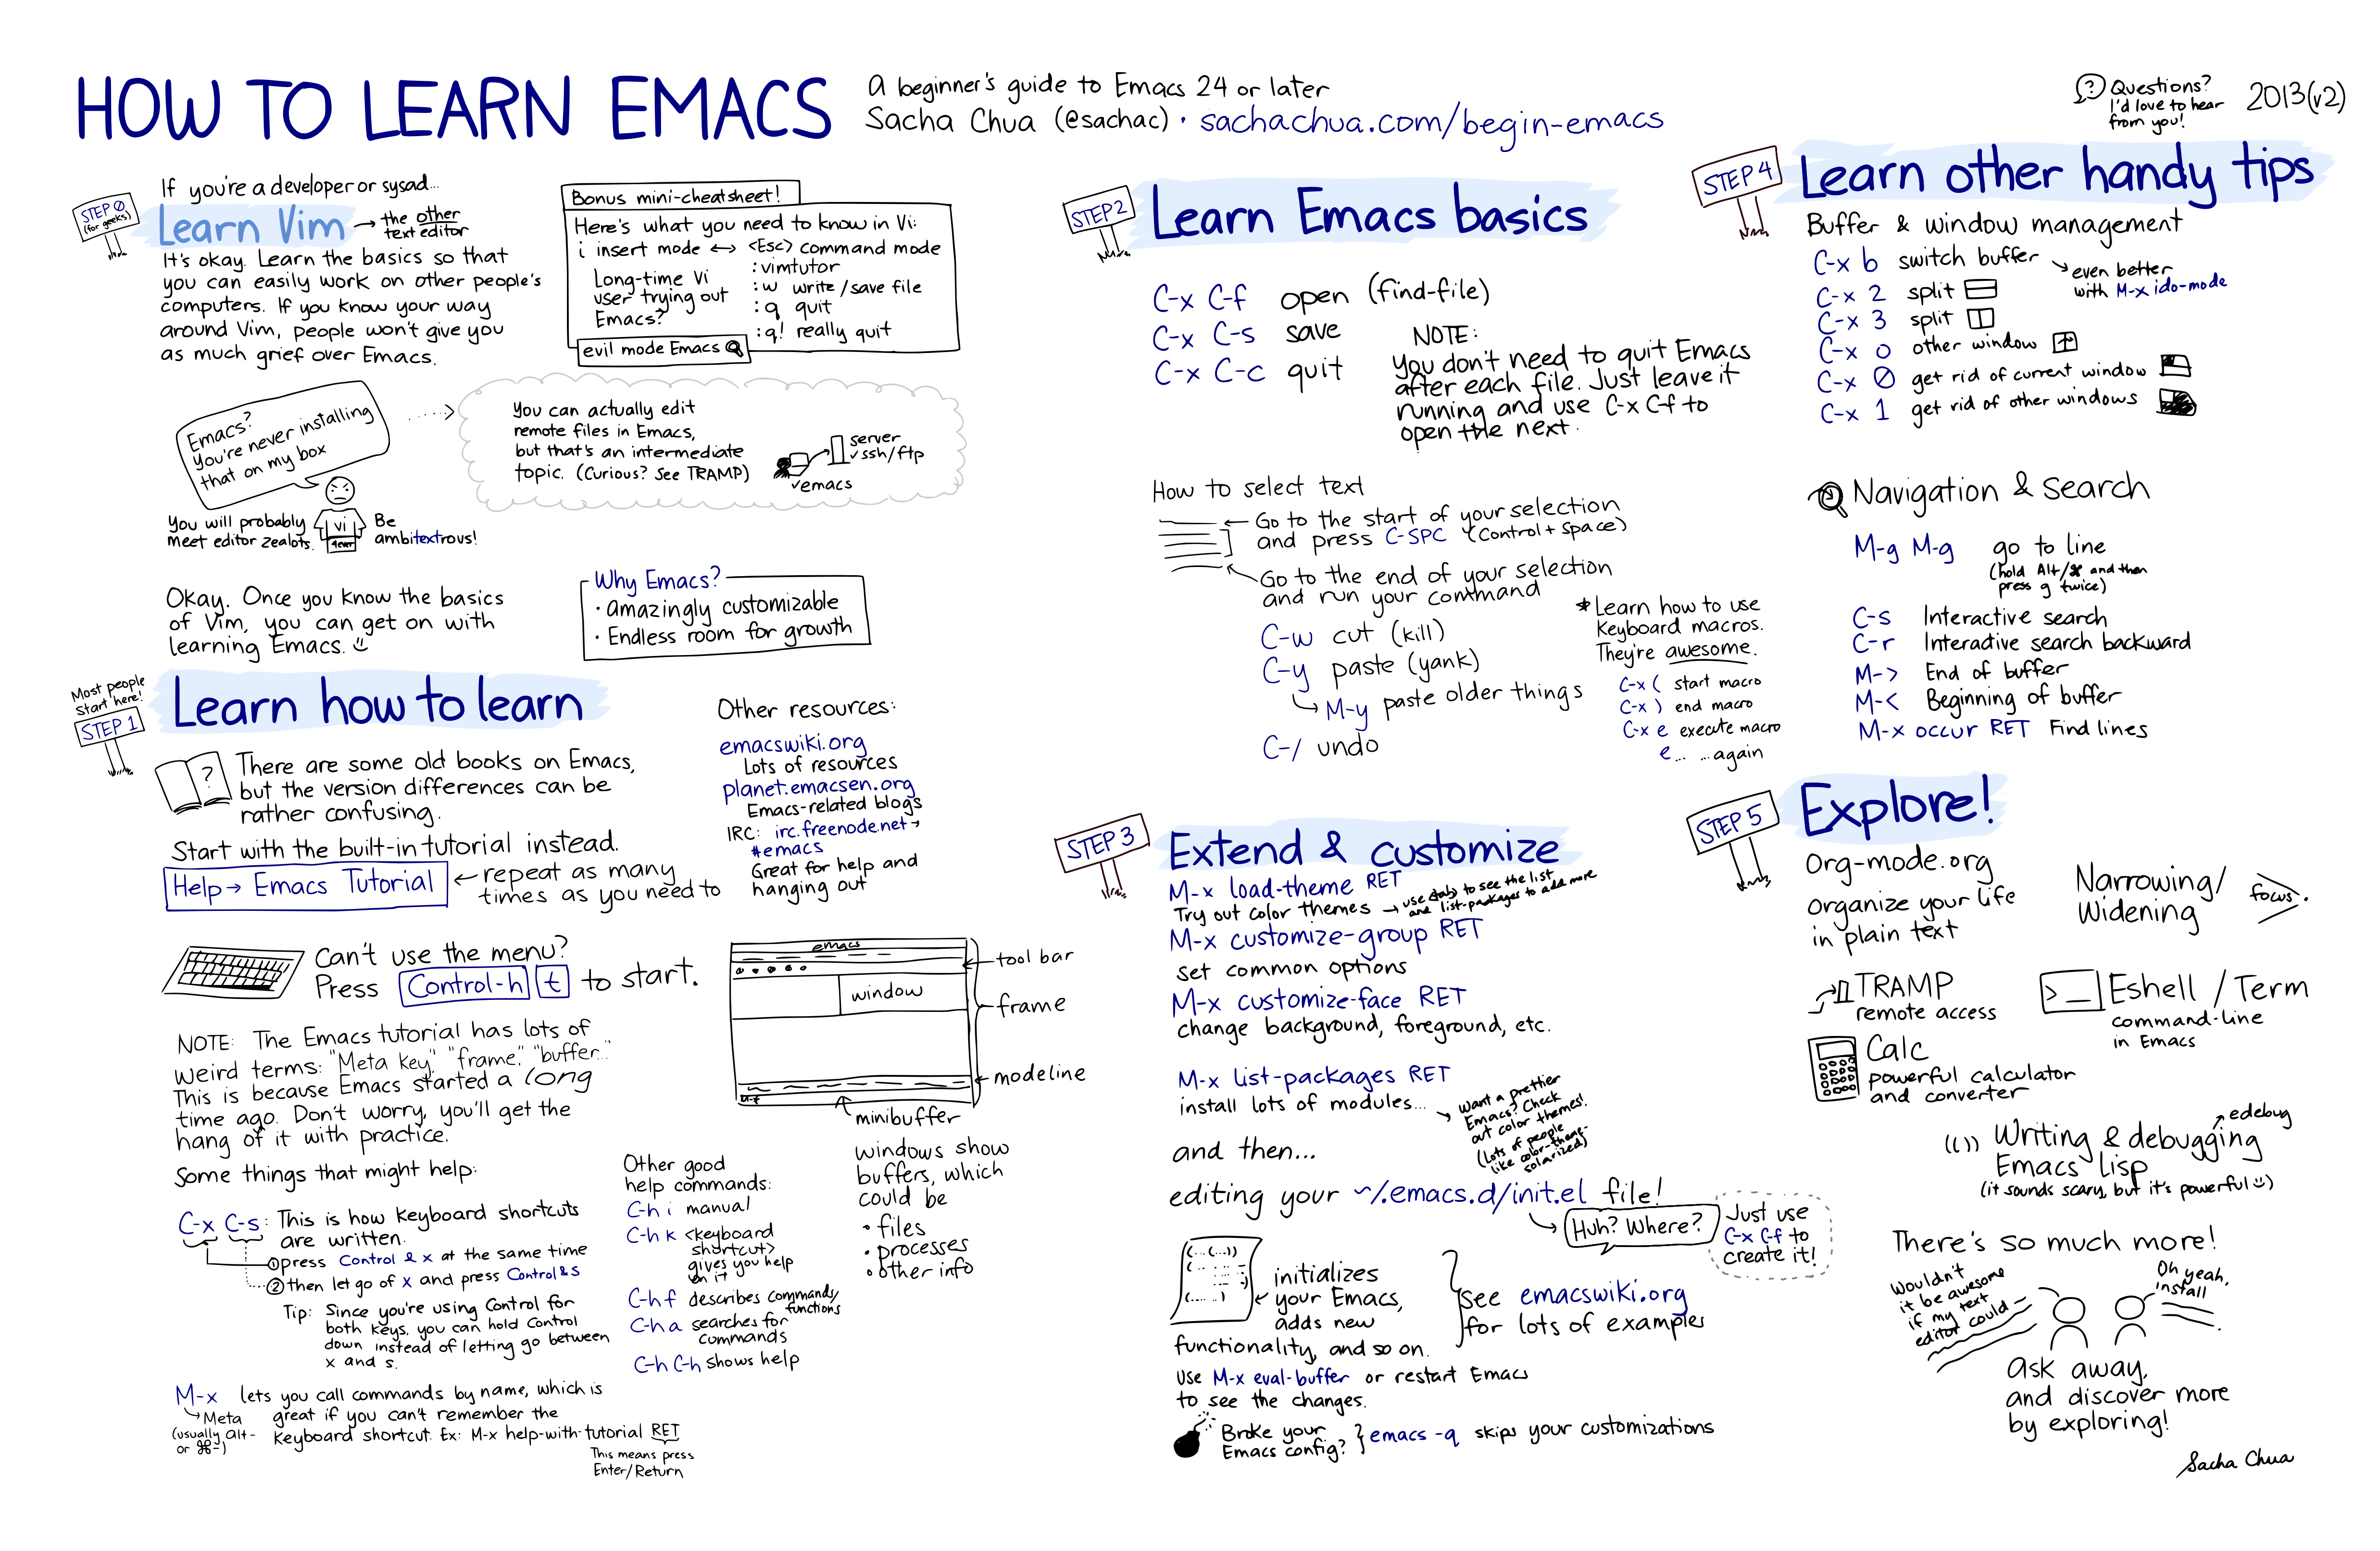 HOW TO LEARN EMACS
A beginner's guide to Emacs 24 or later
Sacha Chua (@sachac) · sachachua.com/begin-emacs
Questions?
I'd love to hear
from you!
2013(v2)
STEP 0
(for geeks)
If you're a developer or sysad...
Learn Vim → the other
text editor
It's okay. Learn the basics so that
you can easily work on other people's
computers. If you know your way
around Vim, people won't give you
as much grief over Emacs.
Bonus mini-cheatsheet!
Here's what you need to know in Vi:
i insert mode ↔ <Esc> command mode
:vimtutor
:w write/save file
:q quit
:q! really quit
Long-time Vi
user trying out
Emacs?
evil mode Emacs
Emacs?
You're never installing
that on my box
You will probably
meet editor zealots.
vi
4ever
Be
ambitextrous!
You can actually edit
remote files in Emacs,
but that's an intermediate
topic. (Curious? See TRAMP)
server
✓ssh/ftp
✓emacs
Okay. Once you know the basics
of Vim, you can get on with
learning Emacs.
Why Emacs?
· amazingly customizable
· Endless room for growth
Most people
start here!
STEP 1
Learn how to learn
?
There are some old books on Emacs,
but the version differences can be
rather confusing.
Start with the built-in tutorial instead.
Help → Emacs Tutorial
← repeat as many
times as you need to
Other resources:
emacswiki.org
Lots of resources
planet.emacsen.org
Emacs-related blogs
IRC: irc.freenode.net →
#emacs
Great for help and
hanging out
Can't use the menu?
Press Control-h t to start.
NOTE: The Emacs tutorial has lots of
weird terms: "Meta key," "frame," "buffer..."
This is because Emacs started a long
time ago. Don't worry, you'll get the
hang of it with practice.
emacs
window
M-x
tool bar
frame
modeline
minibuffer
windows show
buffers, which
could be
· files
· processes
· other info
Some things that might help:
C-x C-s: This is how keyboard shortcuts
are written.
① press Control & x at the same time
② then let go of x and press Control & s
Tip: Since you're using Control for
both keys, you can hold Control
down instead of letting go between
x and s.
Other good
help commands:
C-h i manual
C-h k <keyboard
shortcut>
gives you help
on it
C-h f describes commands/
functions
C-h a searches for
commands
C-h C-h shows help
M-x lets you call commands by name, which is
great if you can't remember the
keyboard shortcut. Ex: M-x help-with-tutorial RET
Meta
(usually alt-
or ⌘-)
This means press
Enter/Return
STEP 2
Learn Emacs basics
C-x C-f open (find-file)
C-x C-s save
C-x C-c quit
NOTE:
You don't need to quit Emacs
after each file. Just leave it
running and use C-x C-f to
open the next.
How to select text
← Go to the start of your selection
and press C-SPC (Control + Space)
Go to the end of your selection
and run your command
C-w cut (kill)
C-y paste (yank)
↳ M-y paste older things
C-/ undo
* Learn how to use
keyboard macros.
They're awesome.
C-x ( start macro
C-x ) end macro
C-x e execute macro
e... ...again
STEP 3
Extend & customize
M-x load-theme RET
Try out color themes → use <tab> to see the list
and list-packages to add more
M-x customize-group RET
set common options
M-x customize-face RET
change background, foreground, etc.
M-x list-packages RET
install lots of modules...
Want a prettier
Emacs? Check
out color themes!
(Lots of people
like color-theme-
solarized)
and then...
editing your ~/.emacs.d/init.el file!
Huh? Where?
Just use
C-x C-f to
create it!
initializes
your Emacs,
adds new
functionality, and so on.
see emacswiki.org
for lots of examples
use M-x eval-buffer or restart Emacs
to see the changes.
Broke your
Emacs config? } emacs -q skips your customizations
STEP 4
Learn other handy tips
Buffer & window management
C-x b switch buffer
even better
with M-x ido-mode
C-x 2 split
C-x 3 split
C-x o other window
C-x 0 get rid of current window
C-x 1 get rid of other windows
Navigation & Search
M-g M-g go to line
(hold Alt/⌘ and then
press g twice)
C-s Interactive search
C-r Interactive search backward
M-> End of buffer
M-< Beginning of buffer
M-x occur RET Find lines
STEP 5
Explore!
Org-mode.org
organize your life
in plain text
Narrowing/
Widening
focus.
TRAMP
remote access
>_ Eshell / Term
command-line
in Emacs
Calc
powerful calculator
and converter
(()) Writing & debugging
Emacs lisp
edebug
(it sounds scary, but it's powerful)
There's so much more!
Wouldn't
it be awesome
if my text
editor could
Oh yeah,
install
ask away,
and discover more
by exploring!
Sacha Chua